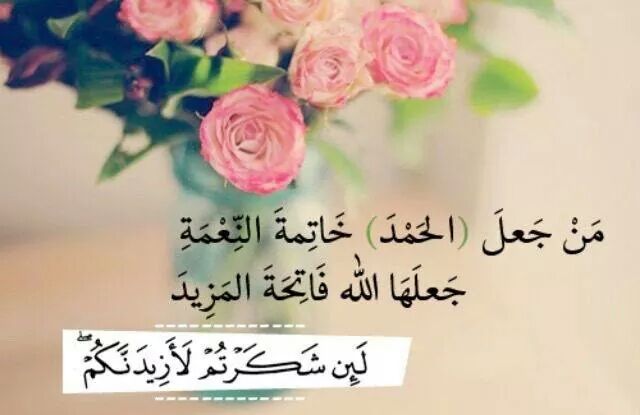 مَنْ جَعلَ (الحَمْدَ) خَاتِمةَ النِّعْمَةِ
جَعلَهَا الله فَاتِحَةَ المَزِيدَ
لَئِن شَكَرْتُمْ لَأَزِيدَنَّكُمْ ۖ